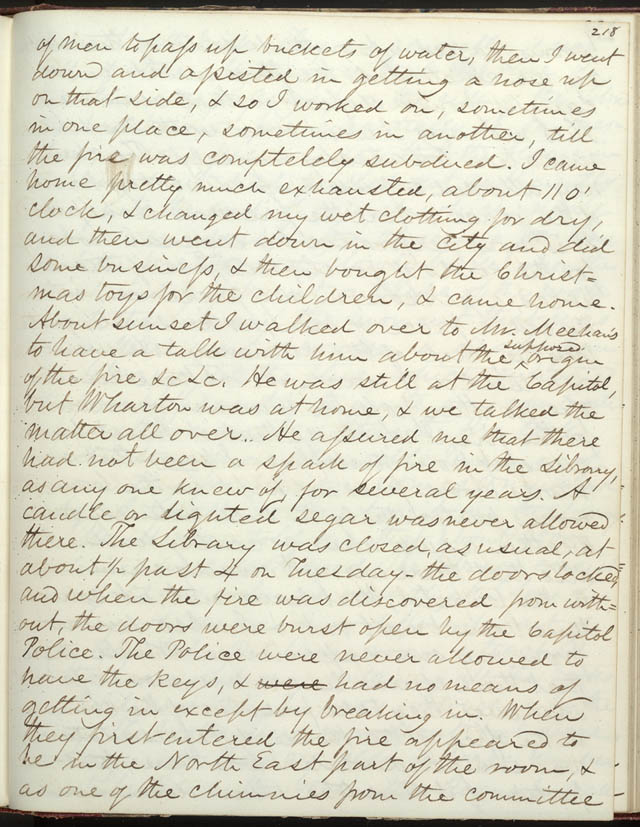 218
of men to pass up buckets of water, then I went
down and assisted in getting a hose up
on that side, & so I worked on, sometimes
in one place, sometimes in another, till
the fire was completely subdued. I came
home pretty much exhausted, about 11 O'
clock, & changed my wet clothing for dry,
and then went down in the city and did
some business, & then bought the Christ=
mas toys for the children, & came home.
About sunset I walked over to Mr. Meehan's
to have a talk with him about the supposed origin
of the fire &c &c. He was still at the Capitol,
but Wharton was at home, & we talked the
matter all over. He assured me that there
had not been a spark of fire in the Library,
as any one knew of, for several years. A
candle or lighted segar was never allowed
there. The Library was closed, as usual, at
about ½ past 4 on Tuesday - the doors locked
and when the fire was discovered from with=
out, the doors were burst open by the Capitol
Police. The Police were never allowed to
have the keys, & were had no means of
getting in except by breaking in. When
they first entered the fire appeared to
be in the North East part of the room, &
as one of the chimnies from the committee